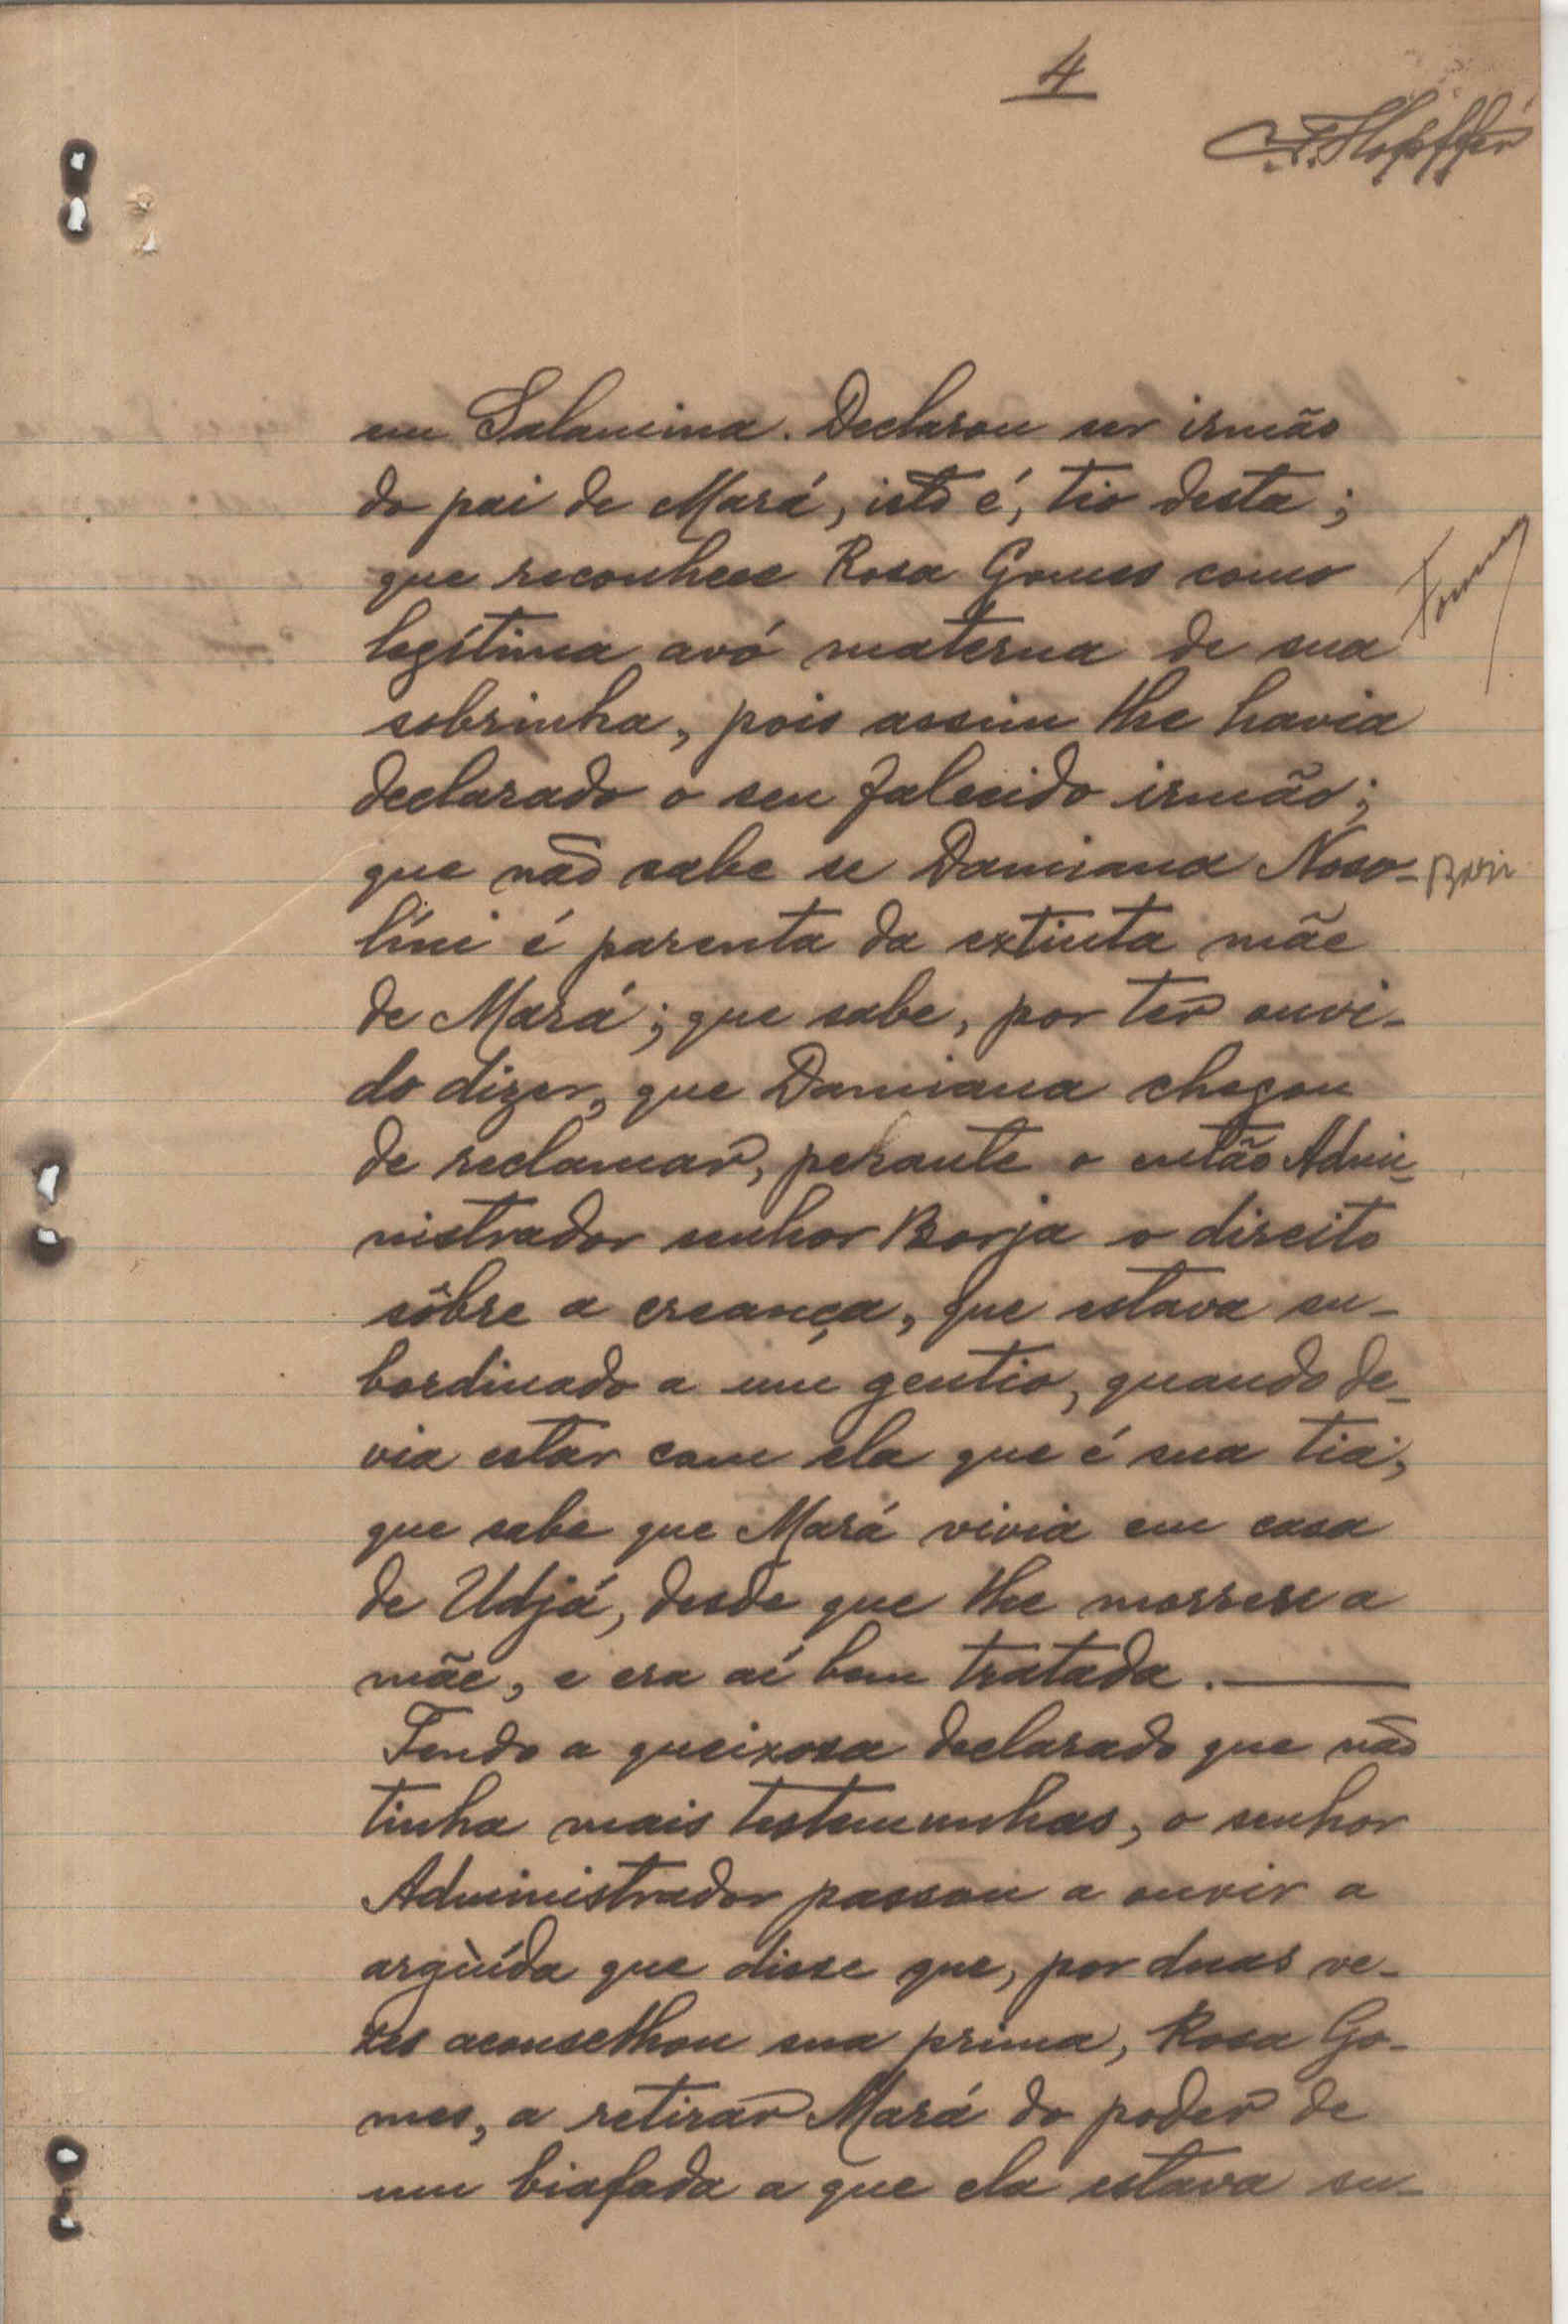 4
Hopffer
em Salancima. Declarou ser irmão
do pai de Mará, isto é, tio desta;
que reconhece Rosa Gomes como
legítima avó materna de sua
sobrinha, pois assim lhe havia
declarado o seu falecido irmão;
que não sabe se Damiana Noso-
líni é parenta da extinta mãe
de Mará; que sabe, por ter ouvi-
do dizer, que Damiana chegou
de reclamar, perante o então Admi-
nistrador senhor Borja o direito
sôbre a creança, que estava su-
bordinado a um gentio, quando de-
via estar com ela que é sua tia;
que sabe que Mará vivia em casa
de Udjá, desde que lhe morrera a
mãe, e era aí bem tratada.
Tendo a queixosa declarado que não
tinha mais testemunhas, o senhor
Administrador passou a ouvir a
argùída que disse que, por duas ve-
zes aconselhou sua prima, Rosa Go-
mes, a retirar Mará do poder de
um biafada a que ela estava su-